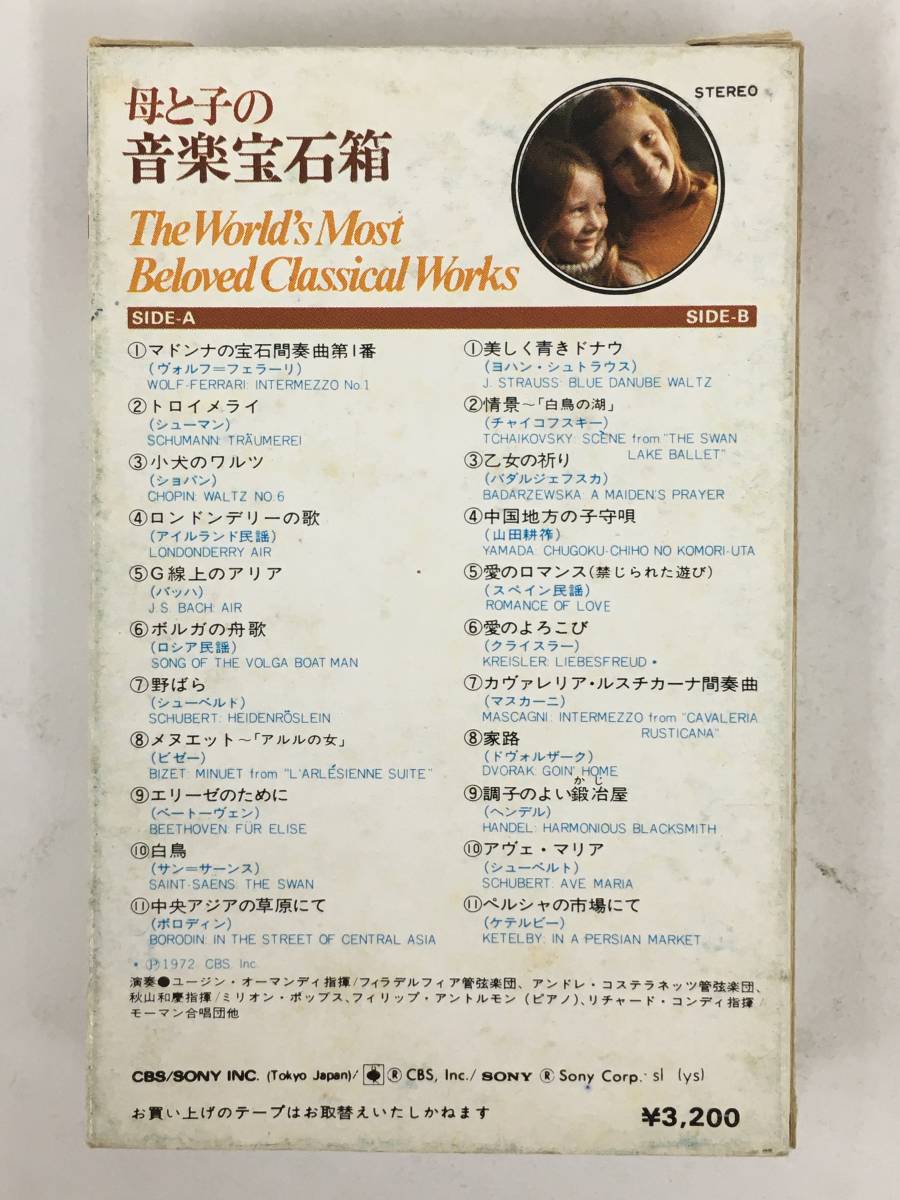 母と子の
音楽宝石箱
STEREO
The World's Most
Beloved Classical Works
SIDE-A
①マドンナの宝石間奏曲第1番
(ヴォルフ=フェラーリ)
WOLF-FERRARI: INTERMEZZO No.1
②トロイメライ
(シューマン)
SCHUMANN: TRÄUMEREI
③小犬のワルツ
(ショパン)
CHOPIN: WALTZ NO.6
④ロンドンデリーの歌
(アイルランド民謡)
LONDONDERRY AIR
⑤G線上のアリア
(バッハ)
J.S. BACH: AIR
⑥ボルガの舟歌
(ロシア民謡)
SONG OF THE VOLGA BOAT MAN
⑦野ばら
(シューベルト)
SCHUBERT: HEIDENRÖSLEIN
⑧メヌエット～「アルルの女」
(ビゼー)
BIZET: MINUET from "L'ARLÉSIENNE SUITE"
⑨エリーゼのために
(ベートーヴェン)
BEETHOVEN: FÜR ELISE
⑩白鳥
(サン=サーンス)
SAINT-SAENS: THE SWAN
⑪中央アジアの草原にて
(ボロディン)
BORODIN: IN THE STREET OF CENTRAL ASIA
SIDE-B
①美しく青きドナウ
(ヨハン・シュトラウス)
J. STRAUSS: BLUE DANUBE WALTZ
②情景～「白鳥の湖」
(チャイコフスキー)
TCHAIKOVSKY: SCÈNE from "THE SWAN
LAKE BALLET"
③乙女の祈り
(バダルジェフスカ)
BADARZEWSKA: A MAIDEN'S PRAYER
④中国地方の子守唄
(山田耕筰)
YAMADA: CHUGOKU-CHIHO NO KOMORI-UTA
⑤愛のロマンス(禁じられた遊び)
(スペイン民謡)
ROMANCE OF LOVE
⑥愛のよろこび
(クライスラー)
KREISLER: LIEBESFREUD •
⑦カヴァレリア・ルスチカーナ間奏曲
(マスカーニ)
MASCAGNI: INTERMEZZO from "CAVALERIA
RUSTICANA"
⑧家路
(ドヴォルザーク)
DVORAK: GOIN' HOME
かじ
⑨調子のよい鍛冶屋
(ヘンデル)
HANDEL: HARMONIOUS BLACKSMITH
⑩アヴェ・マリア
(シューベルト)
SCHUBERT: AVE MARIA
⑪ペルシャの市場にて
(ケテルビー)
KETELBY: IN A PERSIAN MARKET
• Ⓟ1972 CBS. Inc.
演奏●ユージン・オーマンディ指揮/フィラデルフィア管弦楽団、アンドレ・コステラネッツ管弦楽団、
秋山和慶指揮/ミリオン・ポップス、フィリップ・アントルモン(ピアノ)、リチャード・コンディ指揮
モーマン合唱団他
CBS/SONY INC. (Tokyo Japan)/ ® CBS, Inc./ SONY ® Sony Corp. sl (ys)
お買い上げのテープはお取替えいたしかねます
¥3,200